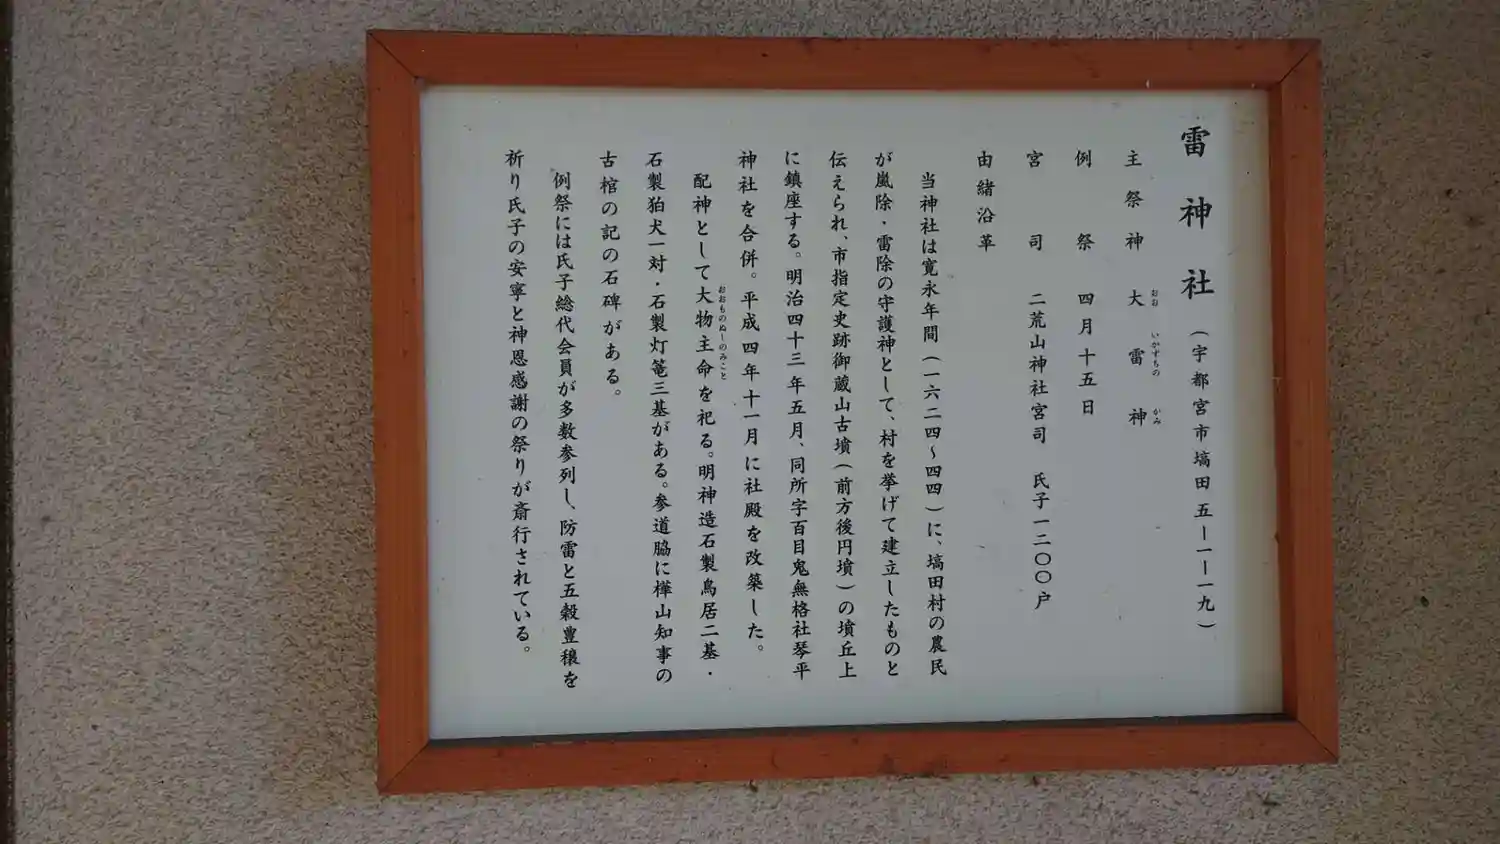 雷神社（宇都宮市塙田五ー一ー一九）
主祭神　大雷神
おお　いかずちの　かみ
例祭　四月十五日
宮司　二荒山神社宮司　氏子一二〇〇戸
由緒沿革
当神社は寛永年間（一六二四～四四）に、塙田村の農民
が嵐除・雷除の守護神として、村を挙げて建立したものと
伝えられ、市指定史跡御蔵山古墳（前方後円墳）の墳丘上
に鎮座する。明治四十三年五月、同所字百目鬼無格社琴平
神社を合併。平成四年十一月に社殿を改築した。
配神として大物主命を祀る。明神造石製鳥居二基・
おおものぬしのみこと
石製狛犬一対・石製灯篭三基がある。参道脇に樺山知事の
古棺の記の石碑がある。
例祭には氏子総代会員が多数参列し、防雷と五穀豊穣を
祈り氏子の安寧と神恩感謝の祭りが斎行されている。